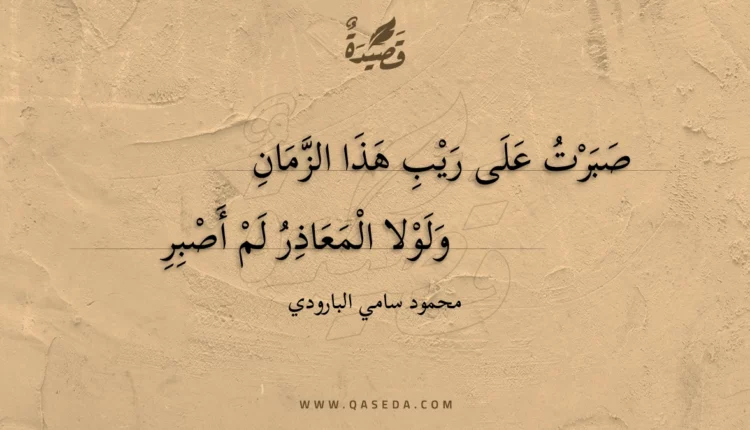 قَصِيدَةٌ
صَبَرْتُ عَلَى رَيْبِ هَذَا الزَّمَانِ
وَلَوْلا الْمَعَاذِرُ لَمْ أَصْبِرِ
محمود سامي البارودي
WWW.QASEDA.COM